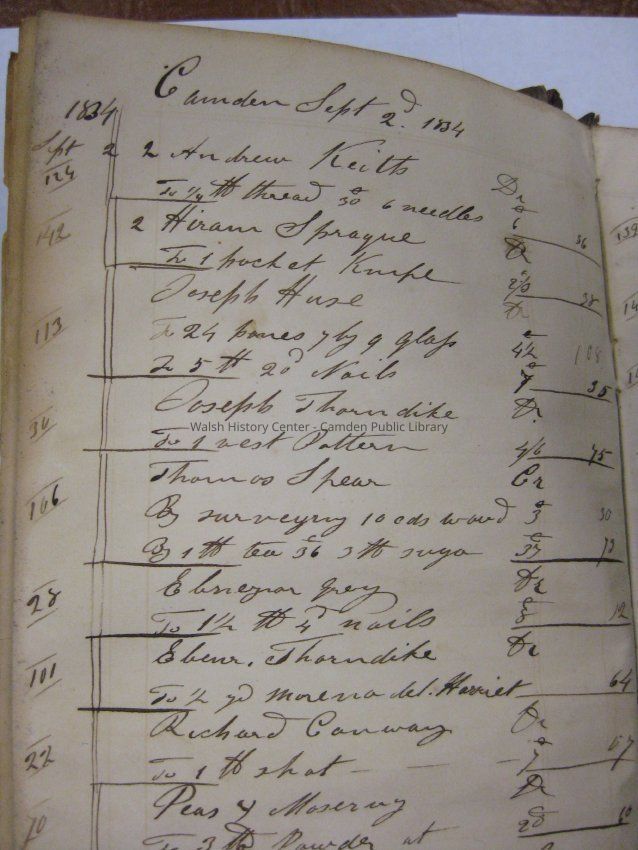 Camden Sept 2d. 1834
1834
Sept 2 2 Andrew Keith Dr
124 To 1/4 lb thread 30 6 needles 6 36
142 2 Hiram Sprague Dr
To 1 pocket Knife 2/3 38
Joseph Huse Dr
113 To 24 panes 7 by 9 glass 4 1/2 108
To 5 lb 20d Nails 7 35
Joseph Thorndike Dr.
30 To 1 vest Pattern 4/6 75
Walsh History Center - Camden Public Library
Thomas Spear Cr
106 By surveying 10 cds wood 3 30
By 1 lb tea 36 3 lb suga 37 73
Ebenezar Grey Dr
28 To 1 1/2 lb 4d nails 12
Ebenr. Thorndike Dr
101 To 1/2 yd moreno del. Harriet 64
Richard Conway Dr
22 To 1 lb shot
Peas & Moservy Dr
70 To 3 lb Powder at